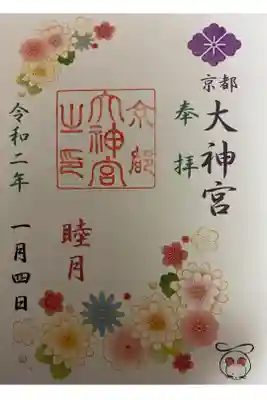 京都
大神宮
奉拝
京都
大神宮
之印
睦月
令和二年
一月四日